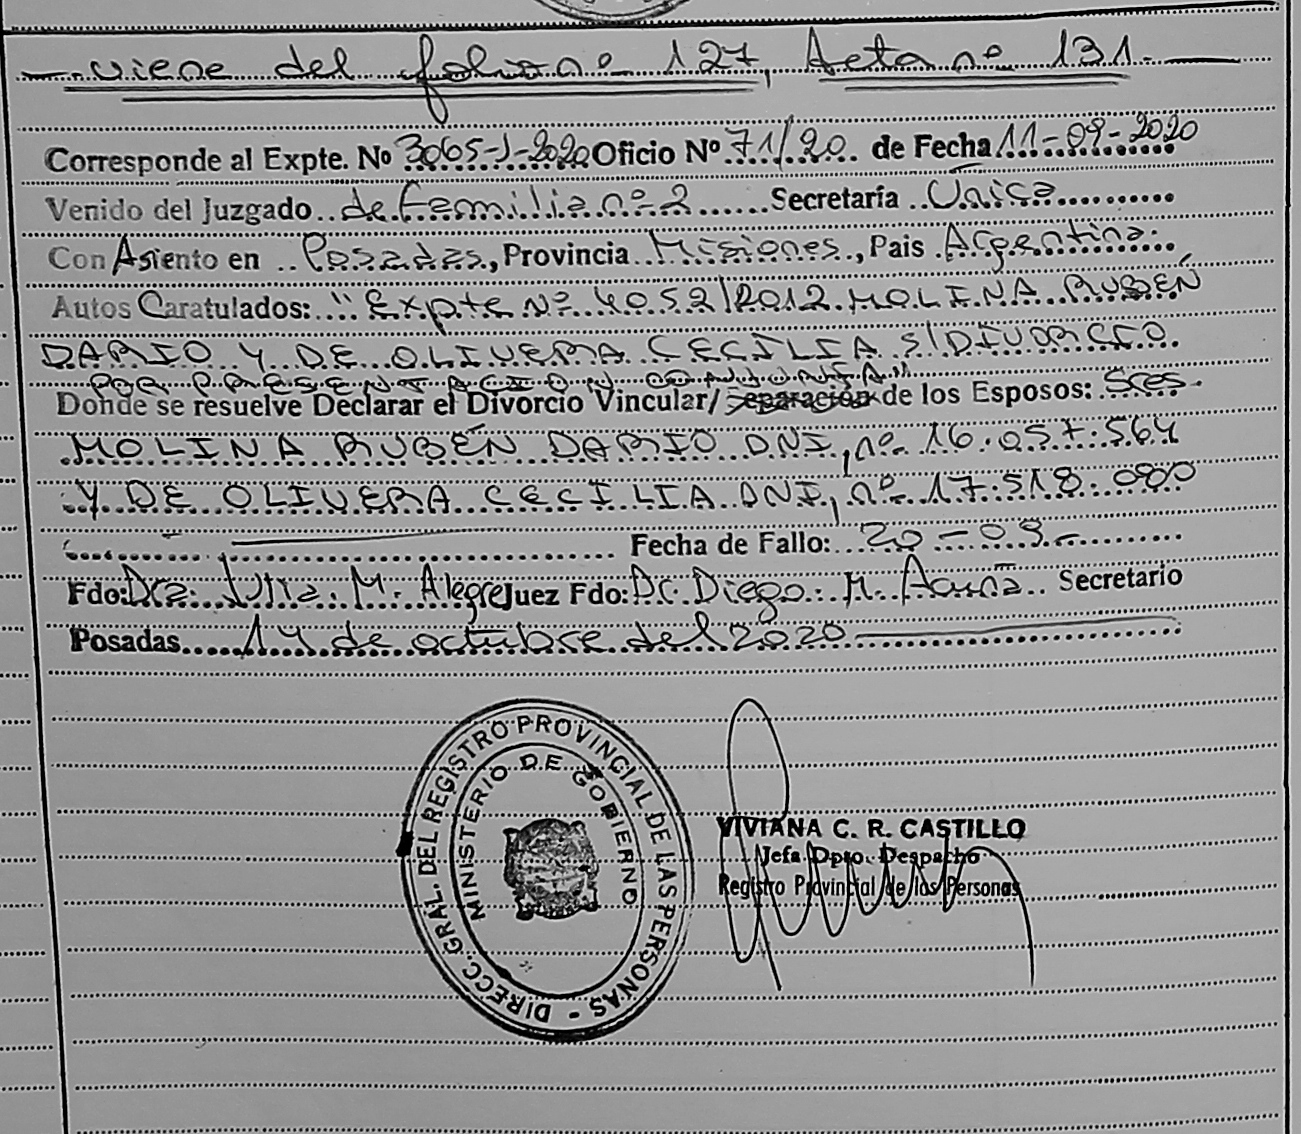 viene del folio nº 127, Acta nº 131.
Corresponde al Expte. Nº 3065-J-2020 Oficio Nº 71/20. de Fecha 11-09-2020
Venido del Juzgado de Familia nº 2 Secretaría Única
Con Asiento en Posadas, Provincia Misiones, Pais Argentina.
Autos Caratulados: "Expte Nº 4052/2012. MOLINA RUBÉN
DARIO Y DE OLIVERA CECILIA S/DIVORCIO
POR PRESENTACION CONJUNTA"
Donde se resuelve Declarar el Divorcio Vincular/Separación de los Esposos: Sres.
MOLINA RUBÉN DARIO DNI, nº 16.057.564
Y DE OLIVERA CECILIA DNI, nº 17.518.080
Fecha de Fallo: 20-09-
Fdo: Dra. Julia. M. Alegre Juez Fdo: Dr. Diego. M. Acuña Secretario
Posadas 14 de octubre del 2020
DIRECC. GRAL. DEL REGISTRO PROVINCIAL DE LAS PERSONAS -
MINISTERIO DE GOBIERNO
VIVIANA C. R. CASTILLO
Jefa Dpto. Despacho
Registro Provincial de las Personas